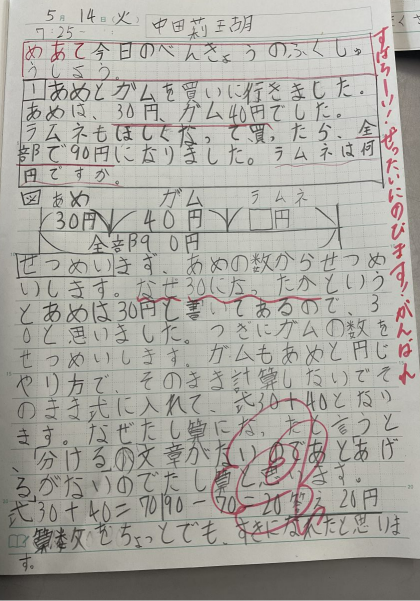 5月14日(火) 中田莉瑚
7:25〜
めあて今日のべんきょうのふくしゅ
うしよう。
1あめとガムを買いに行きました。
あめは、30円、ガム40円でした。
ラムネもほしくなって買ったら、全
部で90円になりました。ラムネは何
円ですか。
図 あめ ガム ラムネ
30円 40円 □円
全部90円
せつめいします、あめの数からせつめ
いします。なぜ30になったかという
とあめは30円と書いてあるので、3
0と思いました。つぎにガムの数を
せつめいします。ガムもあめと同じ
やり方で、そのまま計算しないでそ
のまま式に入れて、式30+40とない
ます。なぜたし算になったと言うと
「分ける」の文章がないのであとあげ
る」がないのでたし算と思います。
式30+40=70 90-70=20 答え20円
算数をちょっとでも、すきになれたと思いま
す。
すばらしい!ぜったいにのびます!がんばれ